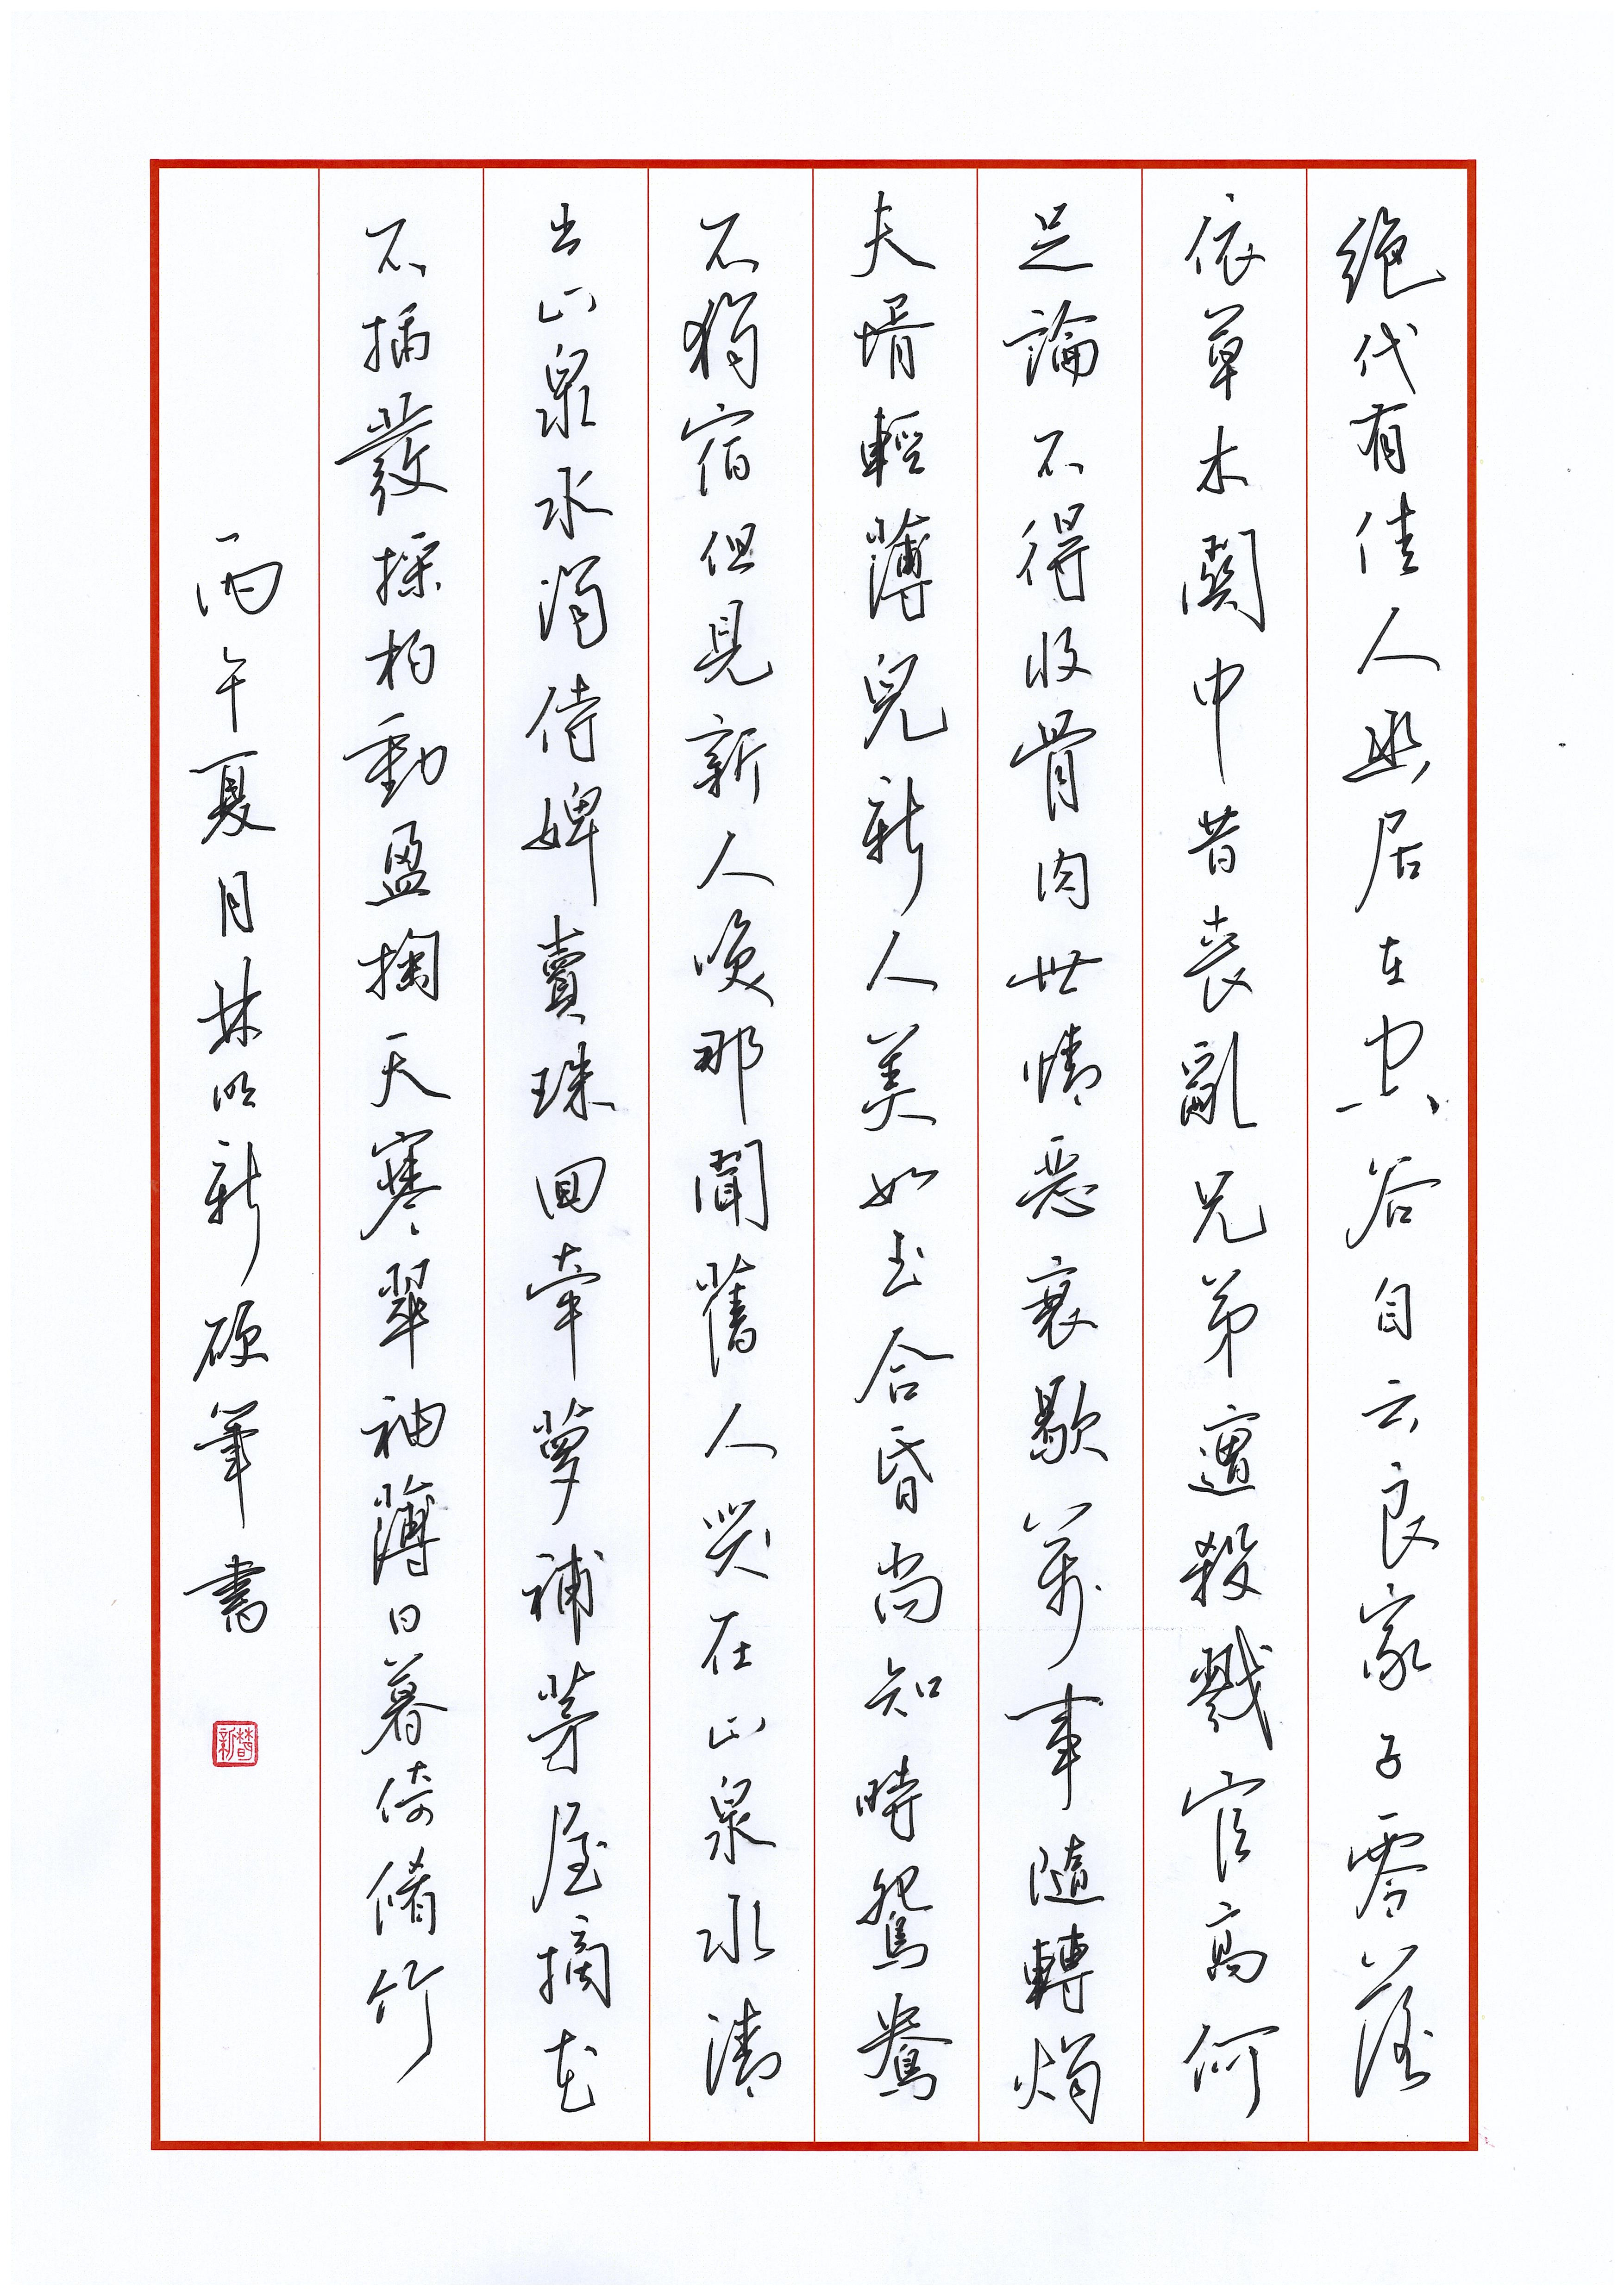 絶代有佳人幽居在空谷自云良家子零落
依草木關中昔喪亂兄弟遭殺戮官高何
足論不得收骨肉世情惡衰歇萬事隨轉燭
夫婿輕薄兒新人美如玉合昏尚知時鴛鴦
不獨宿但見新人咲那聞舊人哭在山泉水清
出山泉水濁侍婢賣珠回牽蘿補茅屋摘花
不插髮採柏動盈掬天寒翠袖薄日暮倚脩竹
丙午夏月林明新硬筆書